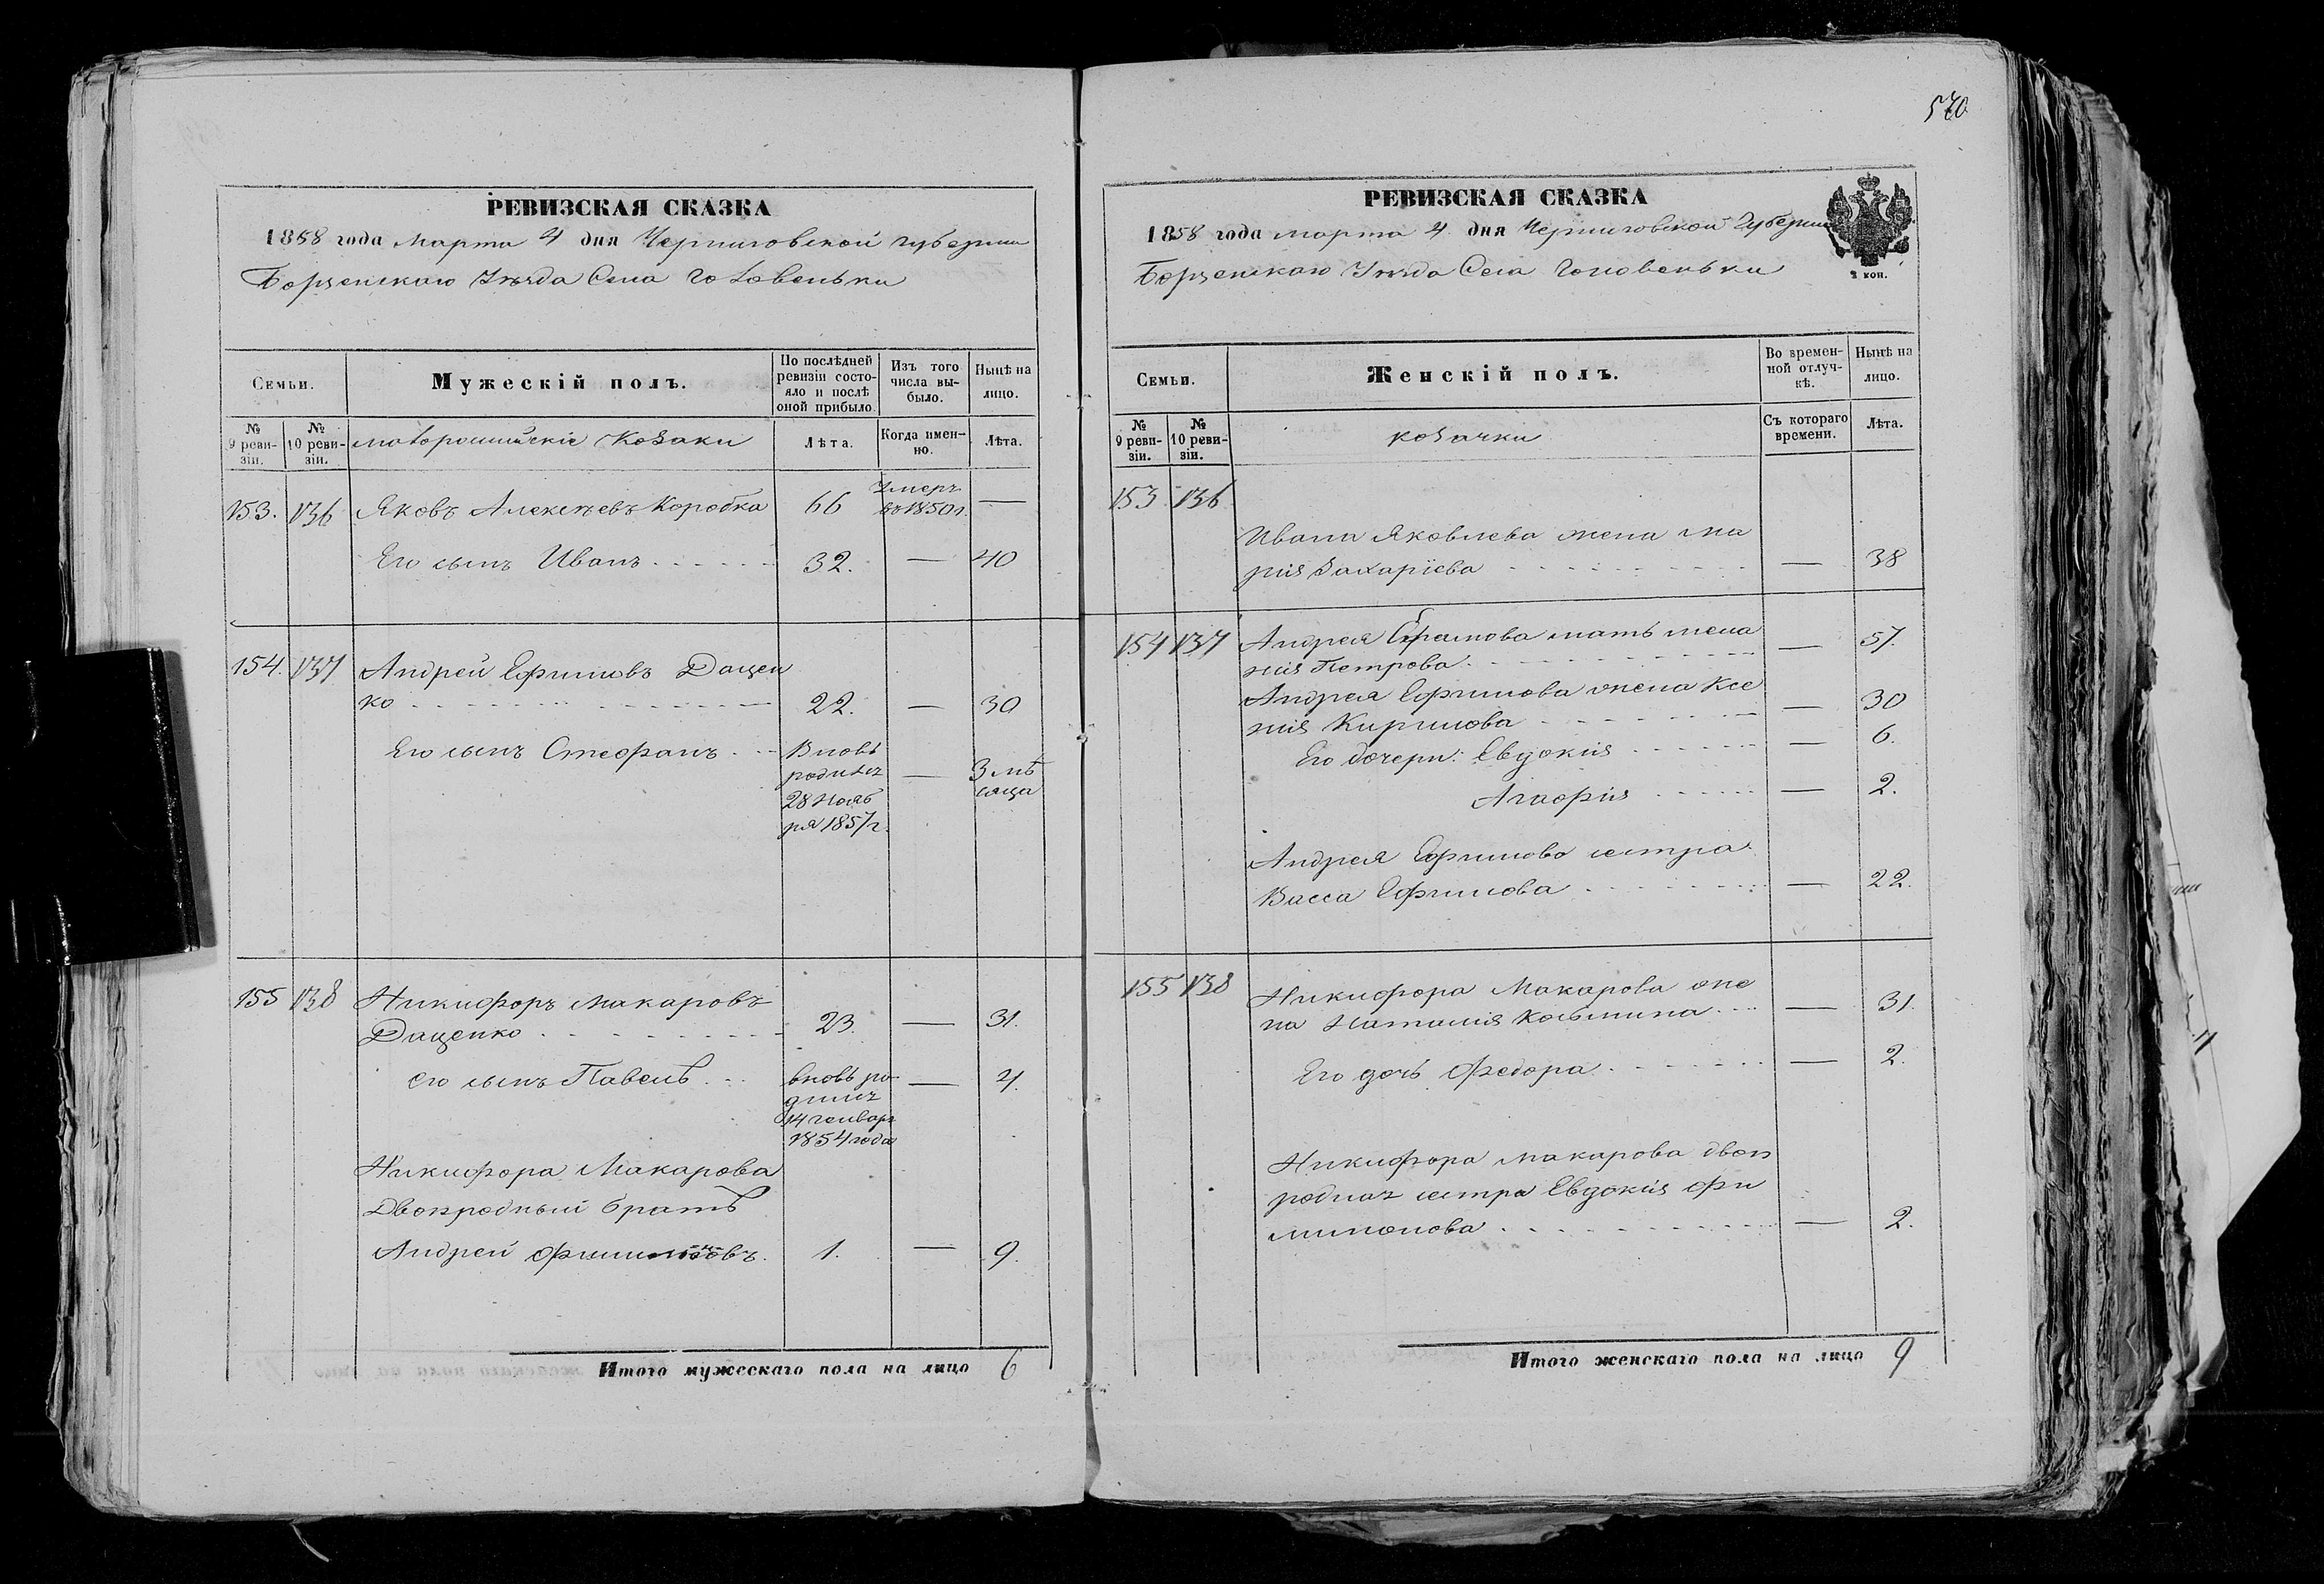 РЕВИЗСКАЯ СКАЗКА
1858 года марта 4 дня Черниговской губернии
Борзенскаго Уѣзда Села Головеньки
Семьи.
Мужескій полъ.
По послѣдней ревизіи состояло и послѣ оной прибыло.
Изъ того числа выбыло.
Нынѣ на лицо.
№ 9 ревизіи.
№ 10 ревизіи.
малороссійскіе козаки
Лѣта.
Когда именно.
Лѣта.
153. 136 Яковъ Алексѣевъ Коробка 66 Умеръ въ 1850 г. —
Его сынъ Иванъ 32. — 40
154. 137 Андрей Ефимовъ Дацен
ко 22. — 30
Его сынъ Стефанъ Вновь
родился — 3 мѣ
28 Нояб сяца
ря 1857 г.
155 138 Никифоръ Макаровъ
Даценко 23. — 31.
его сынъ Павелъ вновь ро — 4.
дился
14 генваря
1854 года
Никифора Макарова
Двоюродный братъ
Андрей Филимоновъ. 1. — 9.
Итого мужескаго пола на лицо 6
570
РЕВИЗСКАЯ СКАЗКА
1858 года марта 4 дня Черниговской Губерніи
Борзенскаго Уѣзда Села Головеньки
2 коп.
Семьи.
Женскій полъ.
Во временной отлучкѣ.
Нынѣ на лицо.
№ 9 ревизіи.
№ 10 ревизіи.
козачки
Съ котораго времени.
Лѣта.
153 136
Ивана Яковлева жена Ма
рия Захаріева — 38
154 137 Андрея Ефимова мать
Петрова — 57.
Андрея Ефимова жена Ксе
ния Кирилова — 30
Его дочери: Евдокия — 6.
Агафия — 2.
Андрея Ефимова сестра
Васса Ефимова — 22.
155 138 Никифора Макарова же
на Наталия Косьмина — 31.
Его дочь Федора — 2.
Никифора Макарова двою
родная сестра Евдокия Фи
лимонова — 2.
Итого женскаго пола на лицо 9